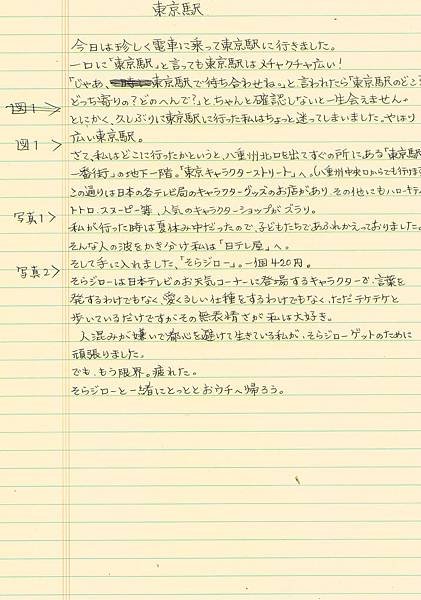 東京駅
今日は珍しく電車に乗って東京駅に行きました。
一口に「東京駅」と言っても東京駅はメチャクチャ広い!
「じゃあ、東京駅で待ち合わせね。」と言われたら「東京駅のどこ?
図1> どっち寄りの?どのへんで?」とちゃんと確認しないと一生会えません。
とにかく、久しぶりに東京駅に行った私はちょっと迷ってしまいました。やはり
図1> 広い東京駅。
さて、私はどこに行ったかというと、八重洲北口を出てすぐの所にある「東京駅
一番街」の地下一階。「東京キャラクターストリート」へ。(八重洲中央口からでも行けます
この通りは日本の各テレビ局のキャラクターグッズのお店があり、その他にもハローキティ
写真1> トトロ、スヌーピー等、人気のキャラクターショップがズラリ。
私が行った時は夏休み中だったので、子どもたちであふれかえっておりました。
そんな人の波をかき分け私は「日テレ屋」へ。
写真2> そして手に入れました、「そらジロー」。一個420円。
そらジローは日本テレビのお天気コーナーに登場するキャラクターで、言葉を
発するわけでもなく、愛くるしい仕種をするわけでもなく、ただテケテケと
歩いているだけですがその無表情さが私は大好き。
人混みが嫌いで都心を避けて生きている私が、そらジローゲットのために
頑張りました。
でも、もう限界。疲れた。
そらジローと一緒にとっととおウチへ帰ろう。